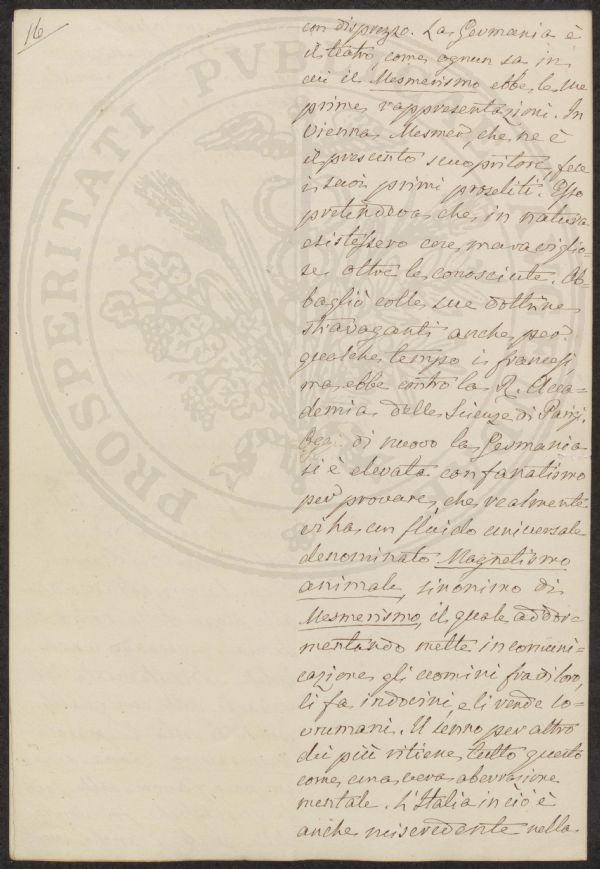 16
con disprezzo. La Germania è
il teatro, come ognun sa in
cui il Mesmerismo ebbe le sue
prime rappresentazioni. In
Vienna Mesmer, che ne è
il presunto scuopritore, fece
i suoi primi proseliti. Esso
pretendeva che in natura
esistessero cose maraviglio=
se oltre le conosciute. Ab=
bagliò colle sue dottrine
stravaganti anche per
qualche tempo i francesi
ma ebbe contro la R. Acca=
demia delle Scienze di Parigi.
Oggi di nuovo la Germania
si è elevata con fanatismo
per provare, che realmente
vi ha un fluido universale
denominato Magnetismo
animale, sinonimo di
Mesmerismo, il quale addor=
mentando mette in comuni=
cazione gli uomini fra di loro,
li fa indovini, e li rende so=
vrumani. Il senno per altro
dei più ritiene tutto questo
come una vera aberrazione
mentale. L'Italia in ciò è
anche miscredente nella
PROSPERITATI PVBL